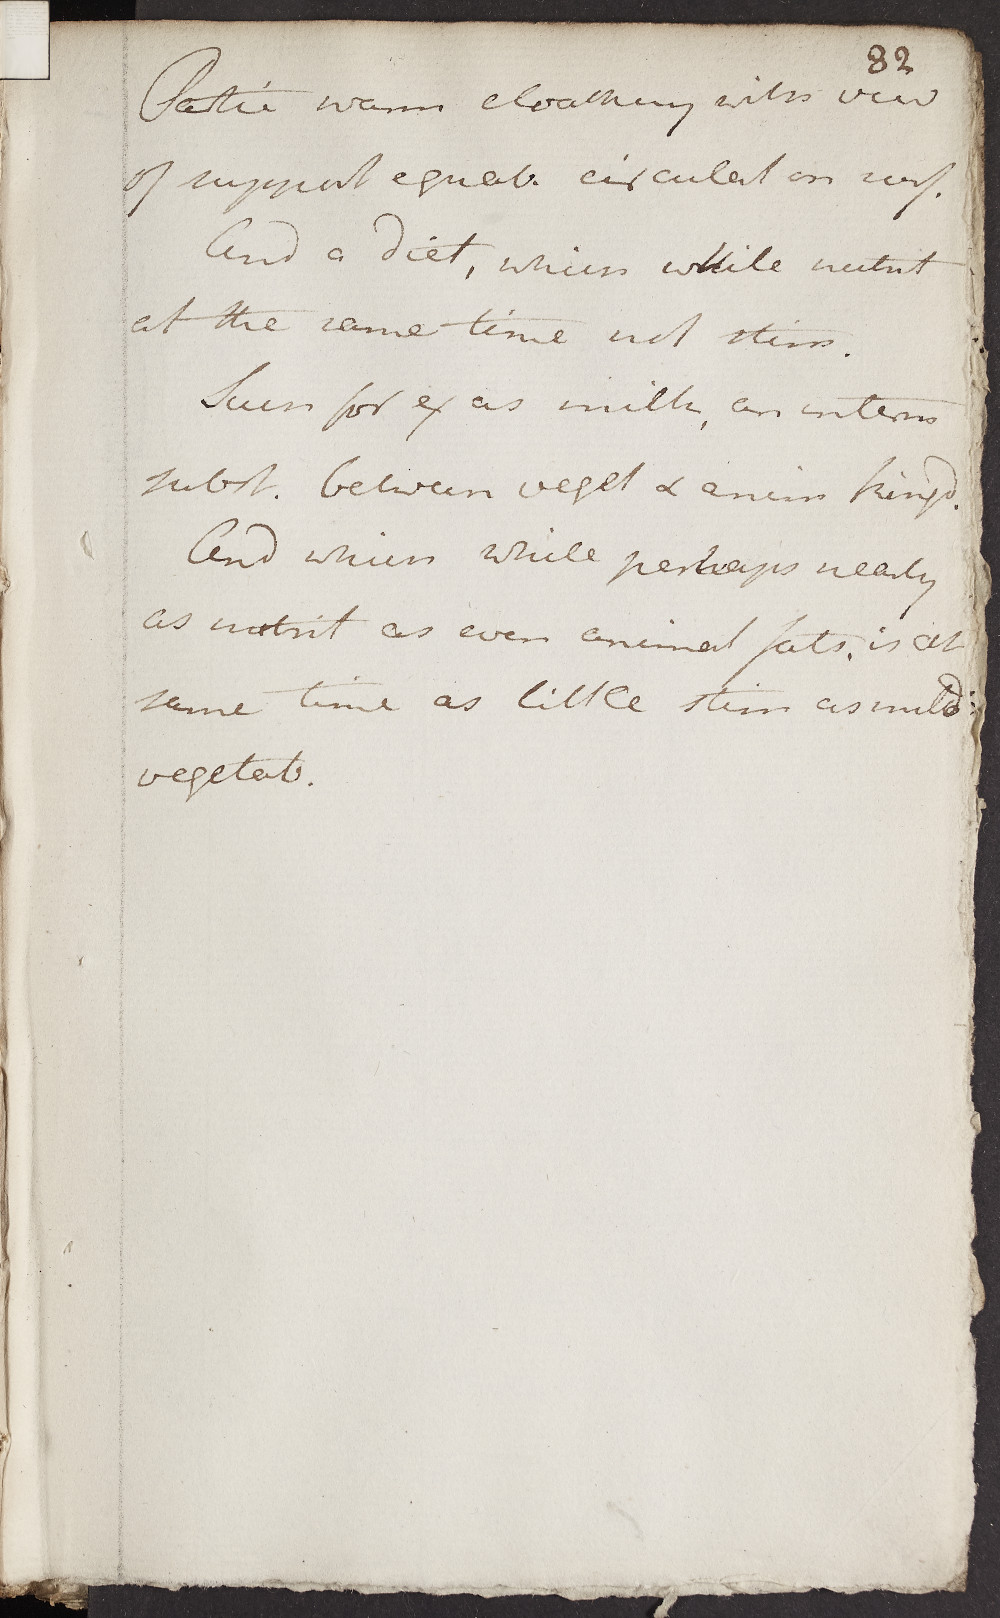 82
Partic warm cloathing with view
of support equab. circulat on surf.
And a diet, which while nutrit
at the same time not stim.
Such for ex as milk, an interm
subst. between veget & anim kingd.
And which while perhaps nearly
as nutrit as even animal fats, is at
same time as little stim as mild
vegetab.